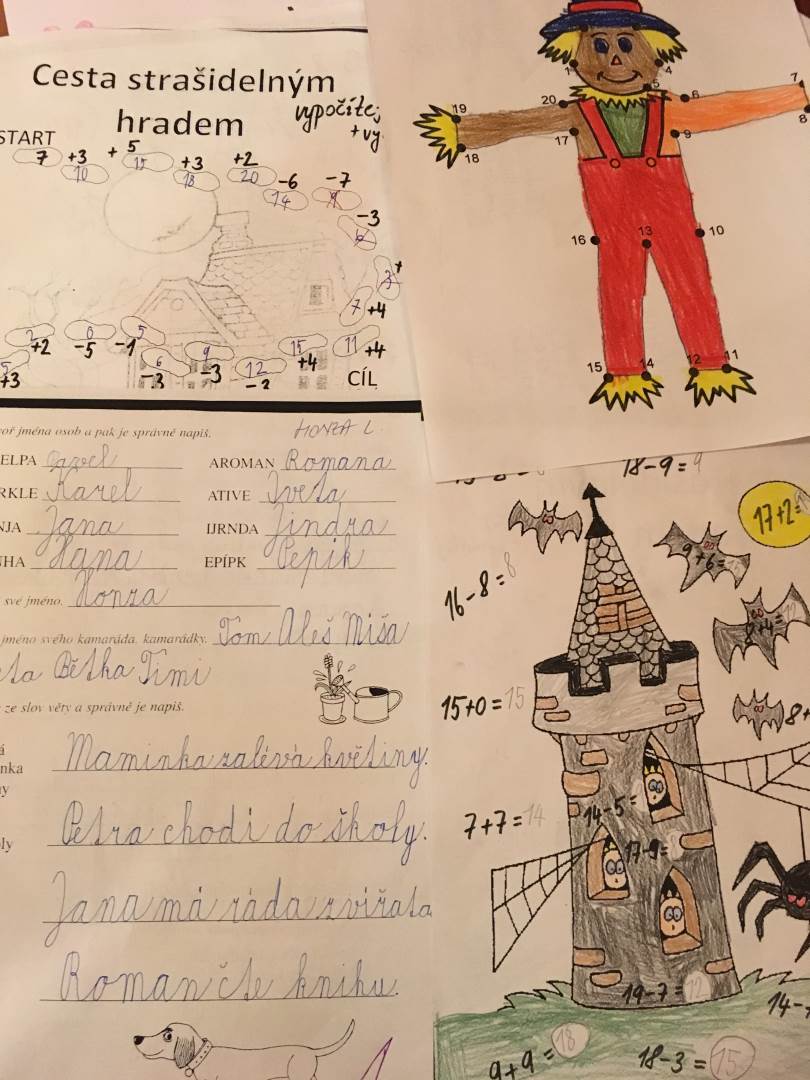 Cesta strašidelným
hradem
vypočítej
+ vy
START
7 +3 + 5 +3 +2
10 15 18 20 -6 -7
14
-3
7 +4
11 +4
15 +4
12
9 -3
6 -3
5 -1
0 -5
2 +2
5 +3
CÍL
19 20 1 4 5 6 7
18 17 9 8
16 13 10
15 14 12 11
oř jména osob a pak je správně napiš.
HONZA L.
ELPA Pavel AROMAN Romana
RKLE Karel ATIVE Iveta
NJA Jana IJRNDA Jindra
HA Hana EPÍPK Pepík
své jméno. Honza
jméno svého kamaráda, kamarádky. Tom Aleš Míša
ta Bětka Timi
ze slov věty a správně je napiš.
nka
ly
Maminka zalévá květiny.
Petra chodí do školy.
Jana má ráda zvířata
Roman čte knihu.
18-9= 9
17+2=
16-8= 8
9+6=
8+4=
15+0= 15
8+
7+7= 14
14-5=
17-9=
19-7= 12
14-
9+9= 18
18-3= 15